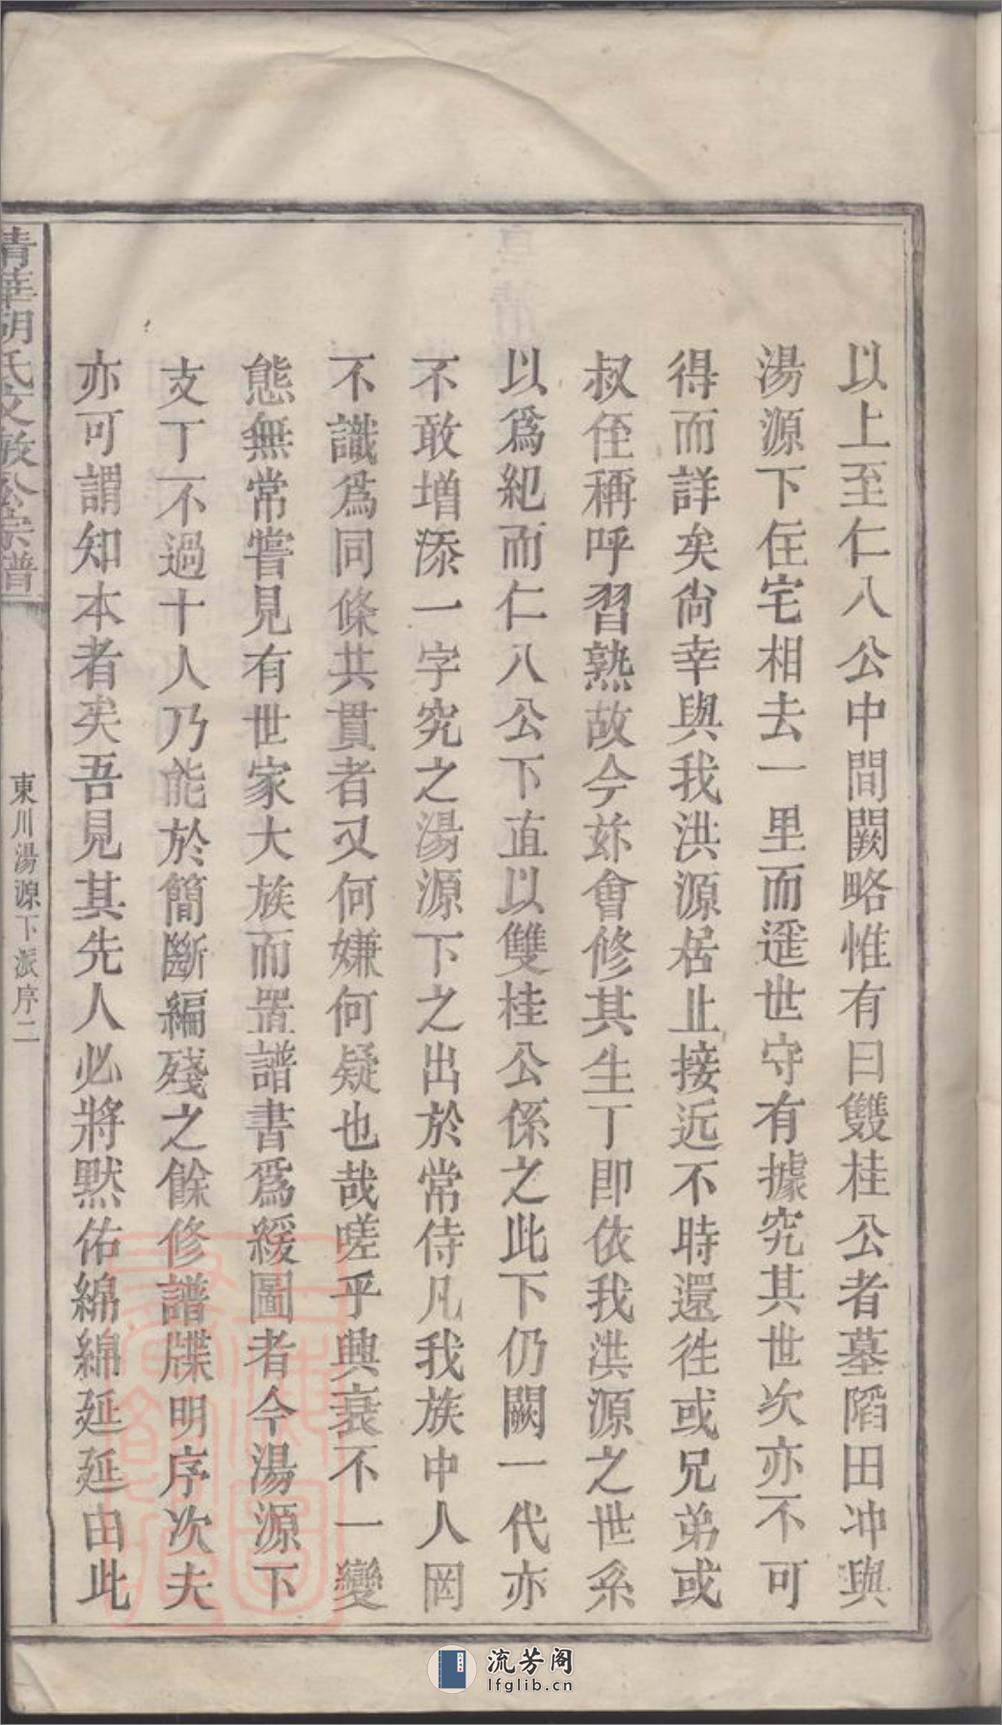 以上至仁八公中間闕略惟有曰雙桂公者墓䧟田冲與
湯源下住宅相去一里而遥世守有據究其世次亦不可
得而詳矣尙幸與我洪源居止接近不時還徃或兄弟或
叔侄稱呼習熟故今竝會修其生丁即依我洪源之世系
以爲紀而仁八公下直以雙桂公係之此下仍闕一代亦
不敢増添一字究之湯源下之出於常侍凡我族中人罔
不識爲同條共貫者又何嫌何疑也哉嗟乎興衰不一變
態無常嘗見有世家大族而置譜書爲緩圖者今湯源下
支丁不過十人乃能於簡斷編殘之餘修譜牒明序次夫
亦可謂知本者矣吾見其先人必將黙佑綿綿延延由此
清華胡氏文敏公宗譜
東川湯源下派序二
流芳阁
lfglib.cn